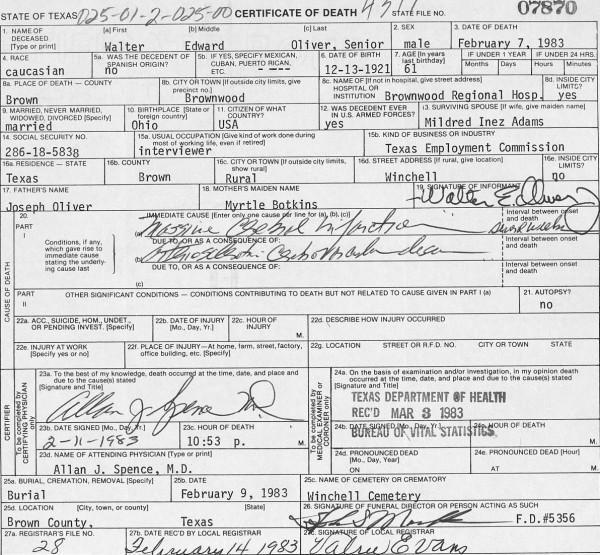 STATE OF TEXAS 025-01-2-025-00 CERTIFICATE OF DEATH STATE FILE NO. 07870
1. NAME OF DECEASED [Type or print] [a] First Walter [b] Middle Edward [c] Last Oliver, Senior 2. SEX male 3. DATE OF DEATH February 7, 1983
4. RACE caucasian 5a. WAS THE DECEDENT OF SPANISH ORIGIN? no 5b. IF YES, SPECIFY MEXICAN, CUBAN, PUERTO RICAN, ETC. ---- 6. DATE OF BIRTH 12-13-1921 7. AGE [In years last birthday] 61 IF UNDER 1 YEAR Months Days IF UNDER 24 HRS. Hours Minutes
8a. PLACE OF DEATH — COUNTY Brown 8b. CITY OR TOWN [If outside city limits, give precinct no.] Brownwood 8c. NAME OF [If not in hospital, give street address] HOSPITAL OR INSTITUTION Brownwood Regional Hosp. 8d. INSIDE CITY LIMITS? yes
9. MARRIED, NEVER MARRIED, WIDOWED, DIVORCED [Specify] married 10. BIRTHPLACE [State or foreign country] Ohio 11. CITIZEN OF WHAT COUNTRY? USA 12. WAS DECEDENT EVER IN U.S. ARMED FORCES? yes 13. SURVIVING SPOUSE [If wife, give maiden name] Mildred Inez Adams
14. SOCIAL SECURITY NO. 286-18-5838 15a. USUAL OCCUPATION [Give kind of work done during most of working life, even if retired] interviewer 15b. KIND OF BUSINESS OR INDUSTRY Texas Employment Commission
16a. RESIDENCE — STATE Texas 16b. COUNTY Brown 16c. CITY OR TOWN [If outside city limits, show rural] Rural 16d. STREET ADDRESS [If rural, give location] Winchell 16e. INSIDE CITY LIMITS? no
17. FATHER'S NAME Joseph Oliver 18. MOTHER'S MAIDEN NAME Myrtle Botkins 19. SIGNATURE OF INFORMANT Walter E Oliver
CAUSE OF DEATH
20. PART I IMMEDIATE CAUSE [Enter only one cause per line for (a), (b), (c)] Interval between onset and death
(a) Massive Infarction
Conditions, if any, which gave rise to immediate cause stating the underlying cause last
DUE TO, OR AS A CONSEQUENCE OF: Interval between onset and death
(b)
DUE TO, OR AS A CONSEQUENCE OF: Interval between onset and death
(c)
PART II OTHER SIGNIFICANT CONDITIONS — CONDITIONS CONTRIBUTING TO DEATH BUT NOT RELATED TO CAUSE GIVEN IN PART I (a) 21. AUTOPSY? no
22a. ACC., SUICIDE, HOM., UNDET., OR PENDING INVEST. [Specify] 22b. DATE OF INJURY [Mo., Day, Yr.] 22c. HOUR OF INJURY M. 22d. DESCRIBE HOW INJURY OCCURRED
22e. INJURY AT WORK [Specify yes or no] 22f. PLACE OF INJURY—At home, farm, street, factory, office building, etc. [Specify] 22g. LOCATION STREET OR R.F.D. NO. CITY OR TOWN STATE
CERTIFIER
To be completed by CERTIFYING PHYSICIAN only
23a. To the best of my knowledge, death occurred at the time, date, and place and due to the cause(s) stated [Signature and Title]
Allan J Spence MD
23b. DATE SIGNED [Mo., Day, Yr.] 2-11-1983 23c. HOUR OF DEATH 10:53 p. M.
23d. NAME OF ATTENDING PHYSICIAN [Type or print] Allan J. Spence, M.D.
To be completed by MEDICAL EXAMINER or CORONER only
24a. On the basis of examination and/or investigation, in my opinion death occurred at the time, date, and place and due to the cause(s) stated [Signature and Title]
TEXAS DEPARTMENT OF HEALTH
REC'D MAR 3 1983
BUREAU OF VITAL STATISTICS
24b. DATE SIGNED [Mo., Day, Yr.] 24c. HOUR OF DEATH M.
24d. PRONOUNCED DEAD [Mo., Day, Year] ON 24e. PRONOUNCED DEAD [Hour] AT M.
25a. BURIAL, CREMATION, REMOVAL [Specify] Burial 25b. DATE February 9, 1983 25c. NAME OF CEMETERY OR CREMATORY Winchell Cemetery
25d. LOCATION [City, town, or county] Brown County, [State] Texas 26. SIGNATURE OF FUNERAL DIRECTOR OR PERSON ACTING AS SUCH F.D.#5356
27a. REGISTRAR'S FILE NO. 28 27b. DATE REC'D BY LOCAL REGISTRAR February 14 1983 27c. SIGNATURE OF LOCAL REGISTRAR Evans